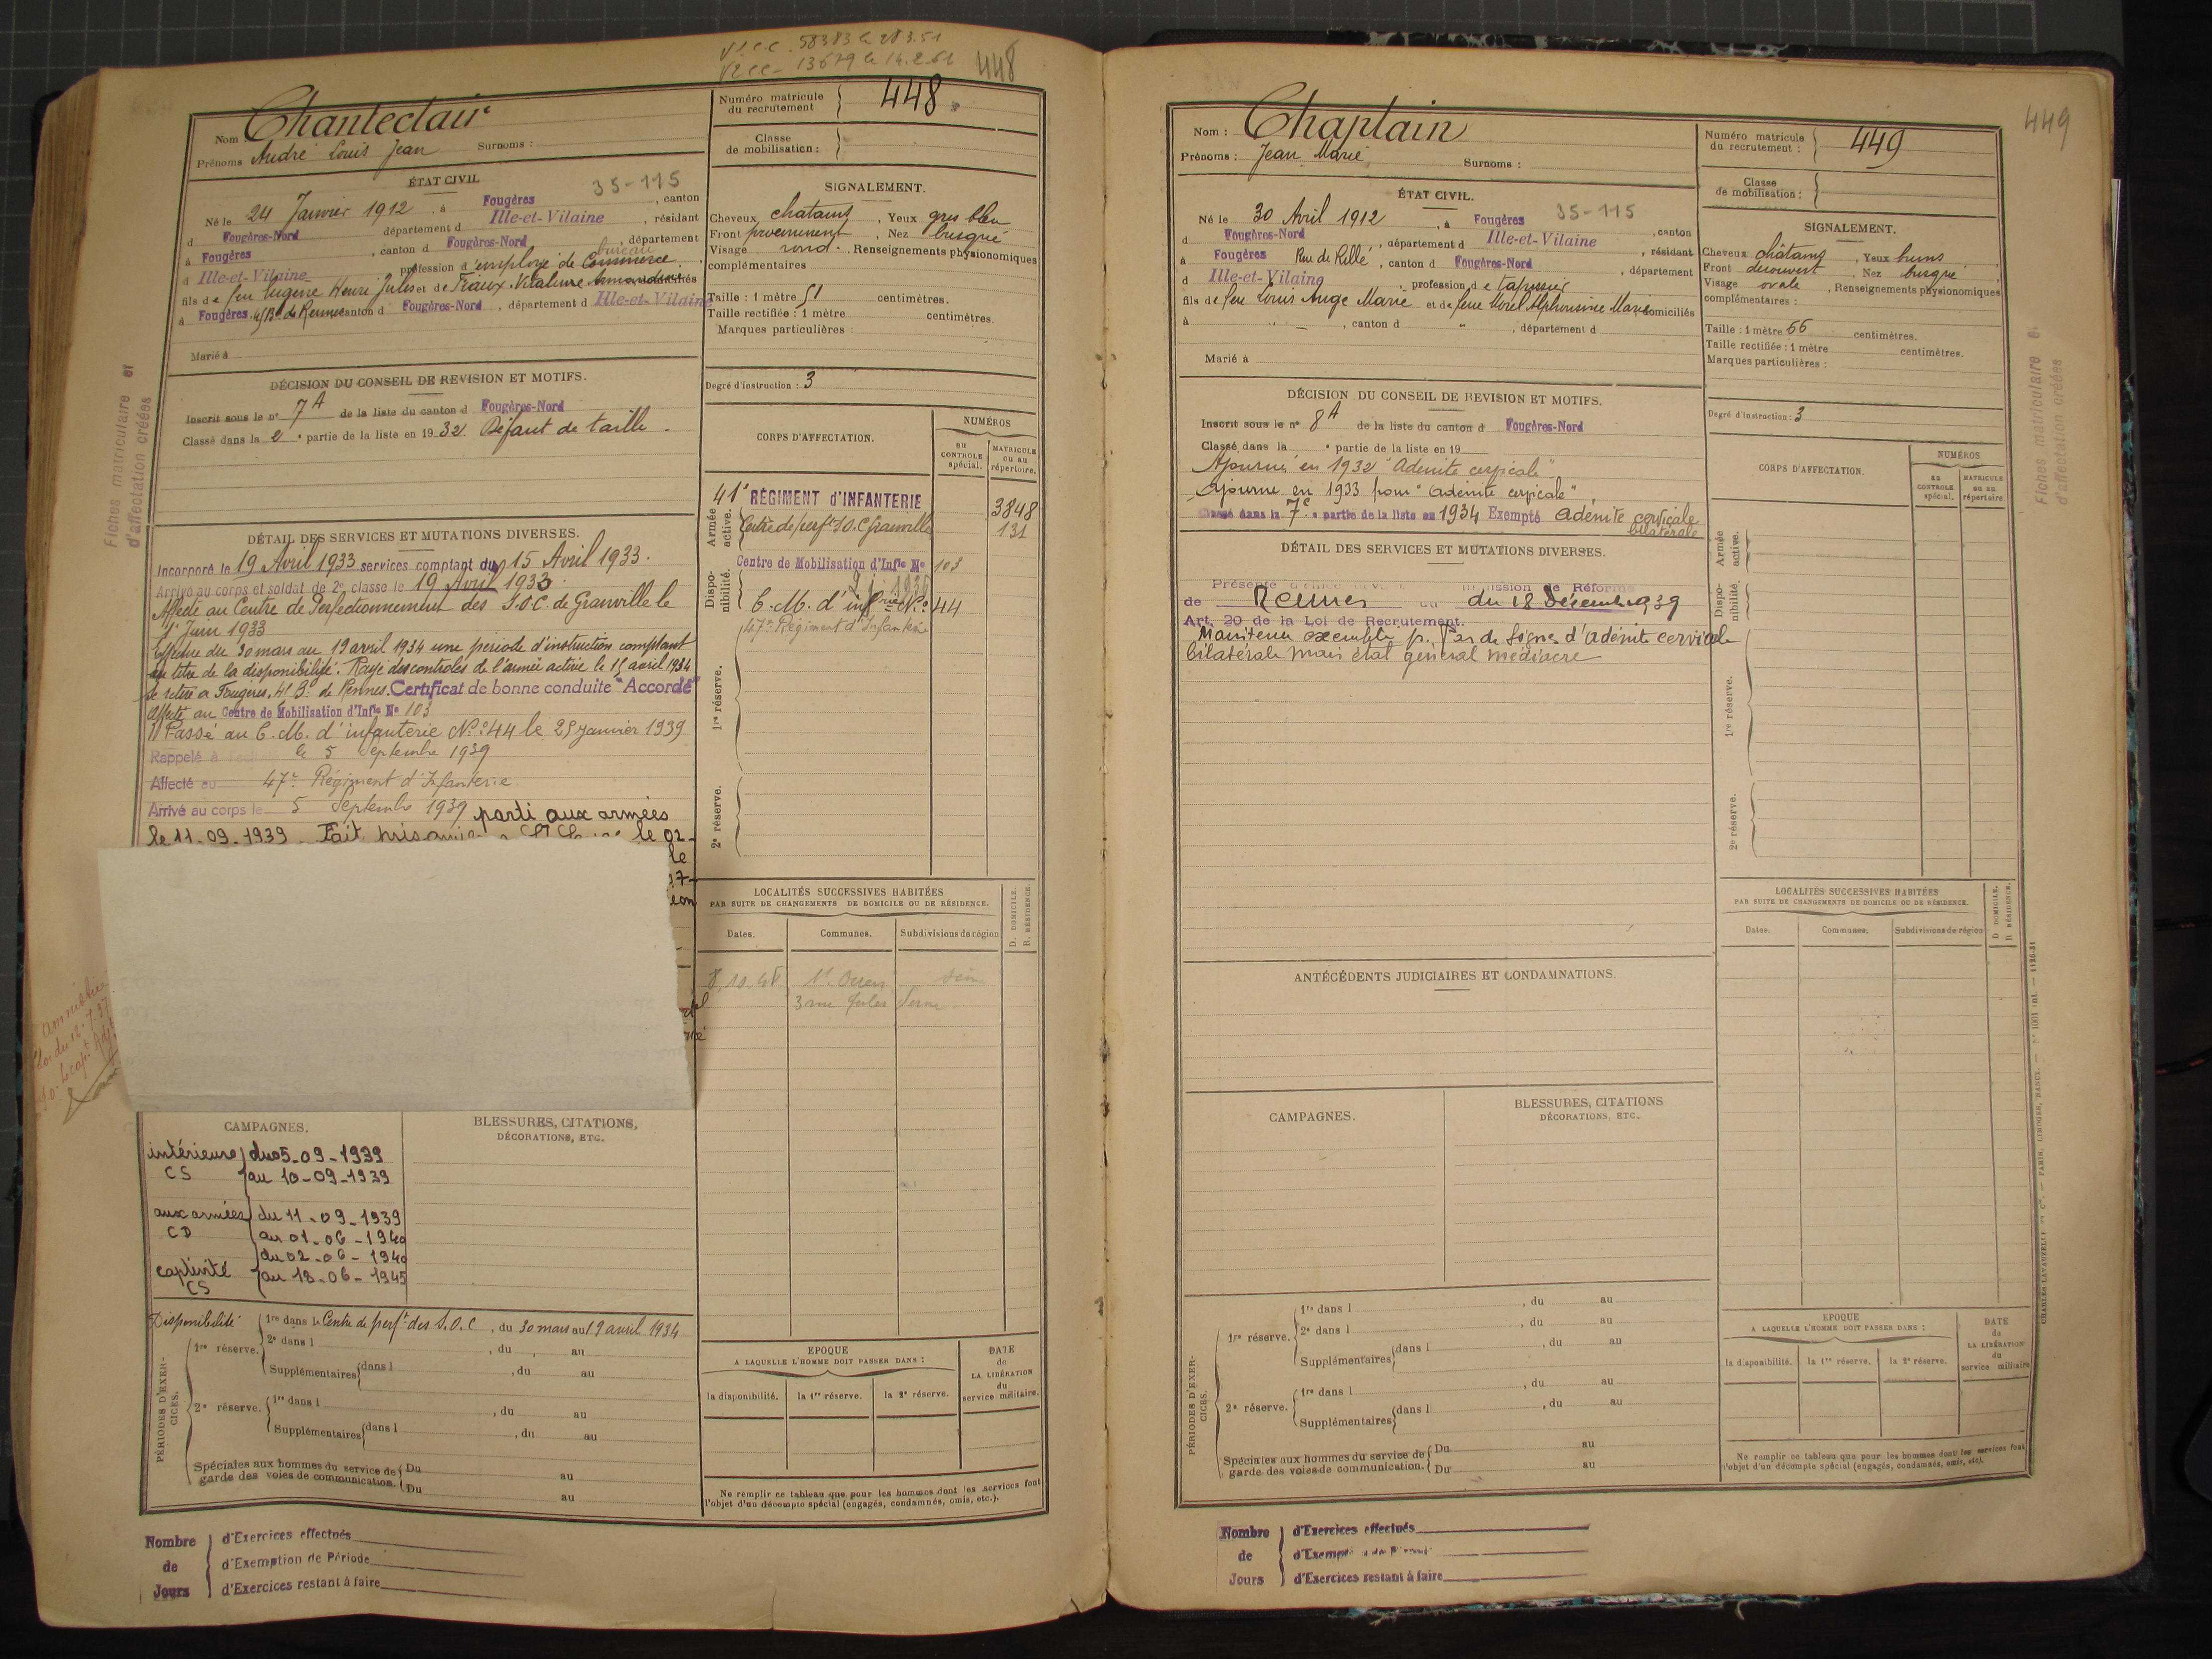 V1CC. 58383 le 28.3.51
V2CC - 13679 le 14.2.61
448
Nom : Chanteclair
Prénoms André Louis Jean Surnoms :
Numéro matricule du recrutement 448
Classe de mobilisation :
ÉTAT CIVIL
35-115
Né le 24 Janvier 1912, à Fougères, canton
d Fougères-Nord département d Ille-et-Vilaine, résidant
à Fougères, canton d Fougères-Nord, département
bureau
d Ille-et-Vilaine profession d'employé de Commerce,
fils de feu Eugène Henri Jules et de Traux Vitaline domiciliés
à Fougères, 41 Bd de Rennes canton d Fougères-Nord, département d Ille-et-Vilaine
Marié à
SIGNALEMENT.
Cheveux chatains, Yeux gris bleu
Front proéminent, Nez busqué
Visage rond. Renseignements physionomiques
complémentaires
Taille : 1 mètre 51 centimètres.
Taille rectifiée : 1 mètre centimètres.
Marques particulières :
Degré d'instruction : 3
DÉCISION DU CONSEIL DE REVISION ET MOTIFS.
Inscrit sous le n° 7A de la liste du canton d Fougères-Nord
Classé dans la 2e partie de la liste en 1932. Défaut de taille.
CORPS D'AFFECTATION.
NUMÉROS
AU CONTROLE spécial.
MATRICULE ou au répertoire.
Armée active.
41e RÉGIMENT d'INFANTERIE 3848
Centre de perft S.O.C Granville 131
Disponibilité.
Centre de Mobilisation d'Infie No 103
C. M. d'infrie No 44
47e Régiment d'Infanterie
1re réserve.
2e réserve.
DÉTAIL DES SERVICES ET MUTATIONS DIVERSES.
Incorporé le 19 Avril 1933 services comptant du 15 Avril 1933.
Arrivé au corps et soldat de 2e classe le 19 Avril 1933.
Affecté au Centre de Perfectionnement des S.O.C. de Granville le
1er Juin 1933
Effectue du 30 mars au 19 avril 1934 une période d'instruction comptant
au titre de la disponibilité. Rayé des controles de l'armée active le 15 avril 1934
Se retire à Fougères, 41 Bd de Rennes. Certificat de bonne conduite "Accordé"
Affecté au Centre de Mobilisation d'Infie No 103
Passé au C. M. d'infanterie No 44 le 25 janvier 1939
Rappelé à le 5 Septembre 1939
Affecté au 47e Régiment d'Infanterie
Arrivé au corps le 5 Septembre 1939 parti aux armées
le 11-09-1939 - Fait le 02-
le
Fiches matriculaire et
d'affectation créées
Amnistié
Loi du 12-7-37
LOCALITÉS SUCCESSIVES HABITÉES
PAR SUITE DE CHANGEMENTS DE DOMICILE OU DE RÉSIDENCE.
Dates. Communes. Subdivisions de région
D. DOMICILE.
R. RÉSIDENCE.
8.10.48 St Ouen Seine
3 rue Jules Verne
CAMPAGNES.
BLESSURES, CITATIONS,
DÉCORATIONS, ETC.
intérieure du 05-09-1939
CS au 10-09-1939
aux armées du 11-09-1939
CD au 01-06-1940
du 02-06-1940
captivité au 18-06-1945
CS
PÉRIODES D'EXERCICES.
Disponibilité 1re dans le Centre de perft des S.O.C, du 30 mars au 19 avril 1934
1re réserve. 2e dans l , du au
Supplémentaires dans l , du au
2e réserve. 1re dans l , du au
Supplémentaires dans l , du au
Spéciales aux hommes du service de Du au
garde des voies de communication. Du au
EPOQUE
A LAQUELLE L'HOMME DOIT PASSER DANS :
la disponibilité. la 1re réserve. la 2e réserve.
DATE de LA LIBÉRATION du service militaire.
Ne remplir ce tableau que pour les hommes dont les services font
l'objet d'un décompte spécial (engagés, condamnés, omis, etc.).
Nombre de Jours
d'Exercices effectués
d'Exemption de Période
d'Exercices restant à faire
449
Nom : Chaplain
Prénoms : Jean Marie Surnoms :
Numéro matricule du recrutement : 449
Classe de mobilisation :
ÉTAT CIVIL.
Né le 30 Avril 1912, à Fougères 35-115
d Fougères-Nord, département d Ille-et-Vilaine, canton
à Fougères Rue de Rillé, canton d Fougères-Nord, résidant
d Ille-et-Vilaine, profession de tapissier, département
fils de feu Louis Ange Marie et de feue Morel Alphonsine Marie domiciliés
à , canton d , département d
Marié à
SIGNALEMENT.
Cheveux châtains, Yeux bruns
Front découvert, Nez busqué
Visage ovale, Renseignements physionomiques
complémentaires :
Taille : 1 mètre 66 centimètres.
Taille rectifiée : 1 mètre centimètres.
Marques particulières :
Degré d'instruction : 3
DÉCISION DU CONSEIL DE REVISION ET MOTIFS.
Inscrit sous le n° 8A de la liste du canton d Fougères-Nord
Classé dans la e partie de la liste en 19
Ajourné en 1932 "Adénite cervicale"
Ajourné en 1933 pour "adénite cervicale"
Classé dans la 7e partie de la liste en 1934 Exempté adénite cervicale
bilatérale
CORPS D'AFFECTATION.
NUMÉROS
AU CONTROLE spécial.
MATRICULE ou au répertoire
Armée active.
Disponibilité.
1re réserve.
2e réserve.
DÉTAIL DES SERVICES ET MUTATIONS DIVERSES.
Présenté mission de Réforme
de Rennes du 18 Décemb 1939
Art. 20 de la Loi de Recrutement.
Maintenu exempté p. Pas de signes d'adénite cervicale
bilatérale mais état général médiocre
Fiches matriculaire et
d'affectation créées
ANTÉCÉDENTS JUDICIAIRES ET CONDAMNATIONS.
LOCALITÉS SUCCESSIVES HABITÉES
PAR SUITE DE CHANGEMENTS DE DOMICILE OU DE RÉSIDENCE.
Dates. Communes. Subdivisions de région
D. DOMICILE.
R. RÉSIDENCE.
CAMPAGNES.
BLESSURES, CITATIONS
DÉCORATIONS, ETC.
PÉRIODES D'EXERCICES.
1re réserve. 1re dans l , du au
2e dans l , du au
Supplémentaires dans l , du au
2e réserve. 1re dans l , du au
Supplémentaires dans l , du au
Spéciales aux hommes du service de Du au
garde des voies de communication. Du au
EPOQUE
A LAQUELLE L'HOMME DOIT PASSER DANS :
la disponibilité. la 1re réserve. la 2e réserve.
DATE de LA LIBÉRATION du service militaire
Ne remplir ce tableau que pour les hommes dont les services font
l'objet d'un décompte spécial (engagés, condamnés, omis, etc).
CHARLES-LAVAUZELLE ET Cie. — PARIS, LIMOGES, NANCY.
Nombre de Jours
d'Exercices effectués
d'Exempt
d'Exercices restant à faire